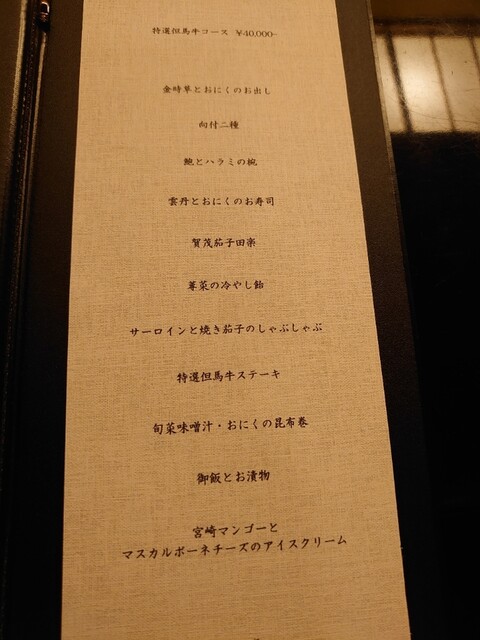 特選但馬牛コース ¥40,000-
金時草とおにくのお出し
向付二種
鮑とハラミの椀
雲丹とおにくのお寿司
賀茂茄子田楽
蓴菜の冷やし飴
サーロインと焼き茄子のしゃぶしゃぶ
特選但馬牛ステーキ
旬菜味噌汁・おにくの昆布巻
御飯とお漬物
宮崎マンゴーと
マスカルポーネチーズのアイスクリーム